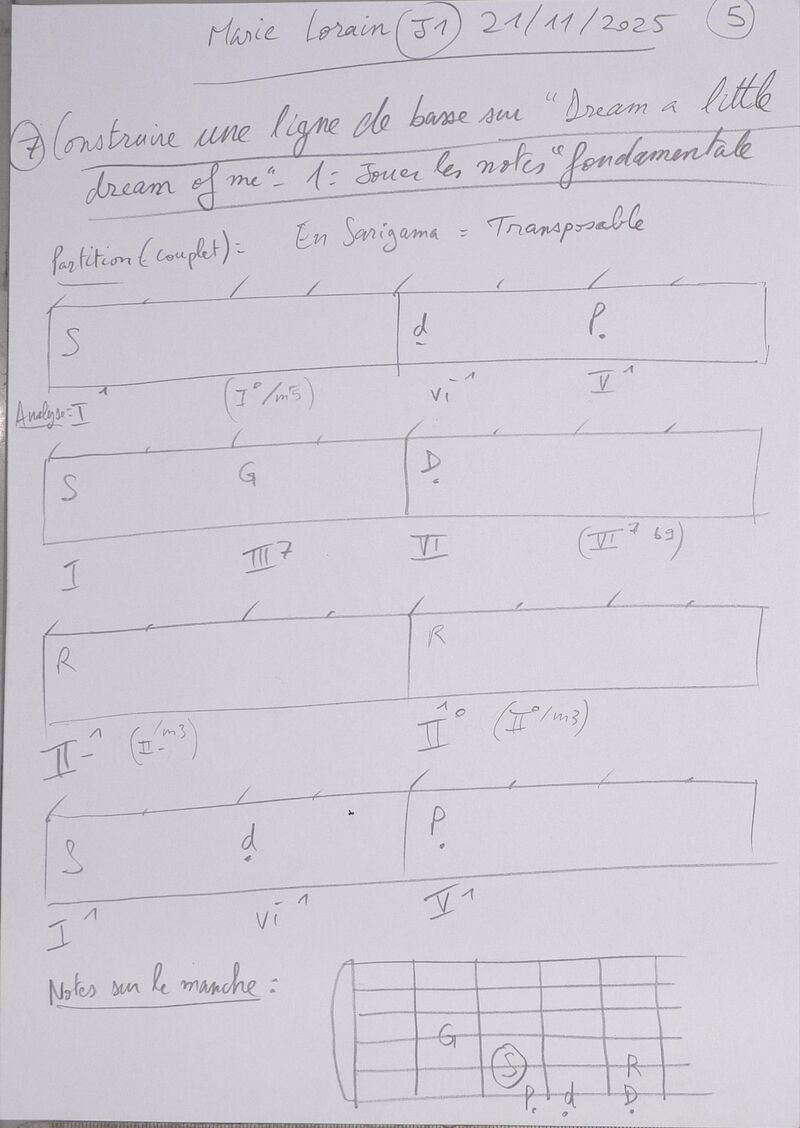 Marie Lorain (J1) 21/11/2025 (5)
(7) Construire une ligne de basse sur "Dream a little
dream of me" - 1 = Jouer les notes "fondamentale
Partition (couplet) = En Sarigama = Transposable
S d P.
Analyse = I ^1 (I°/m5) vi ^1 V ^1
S G Ḍ
I III 7 VI (VI 7 b9)
R R
II- ^1 (II-/m3) II ^1 ° (II°/m3)
S ḍ P.
I ^1 vi ^1 V 1
Notes sur le manche =
G
S R
P. ḍ Ḍ